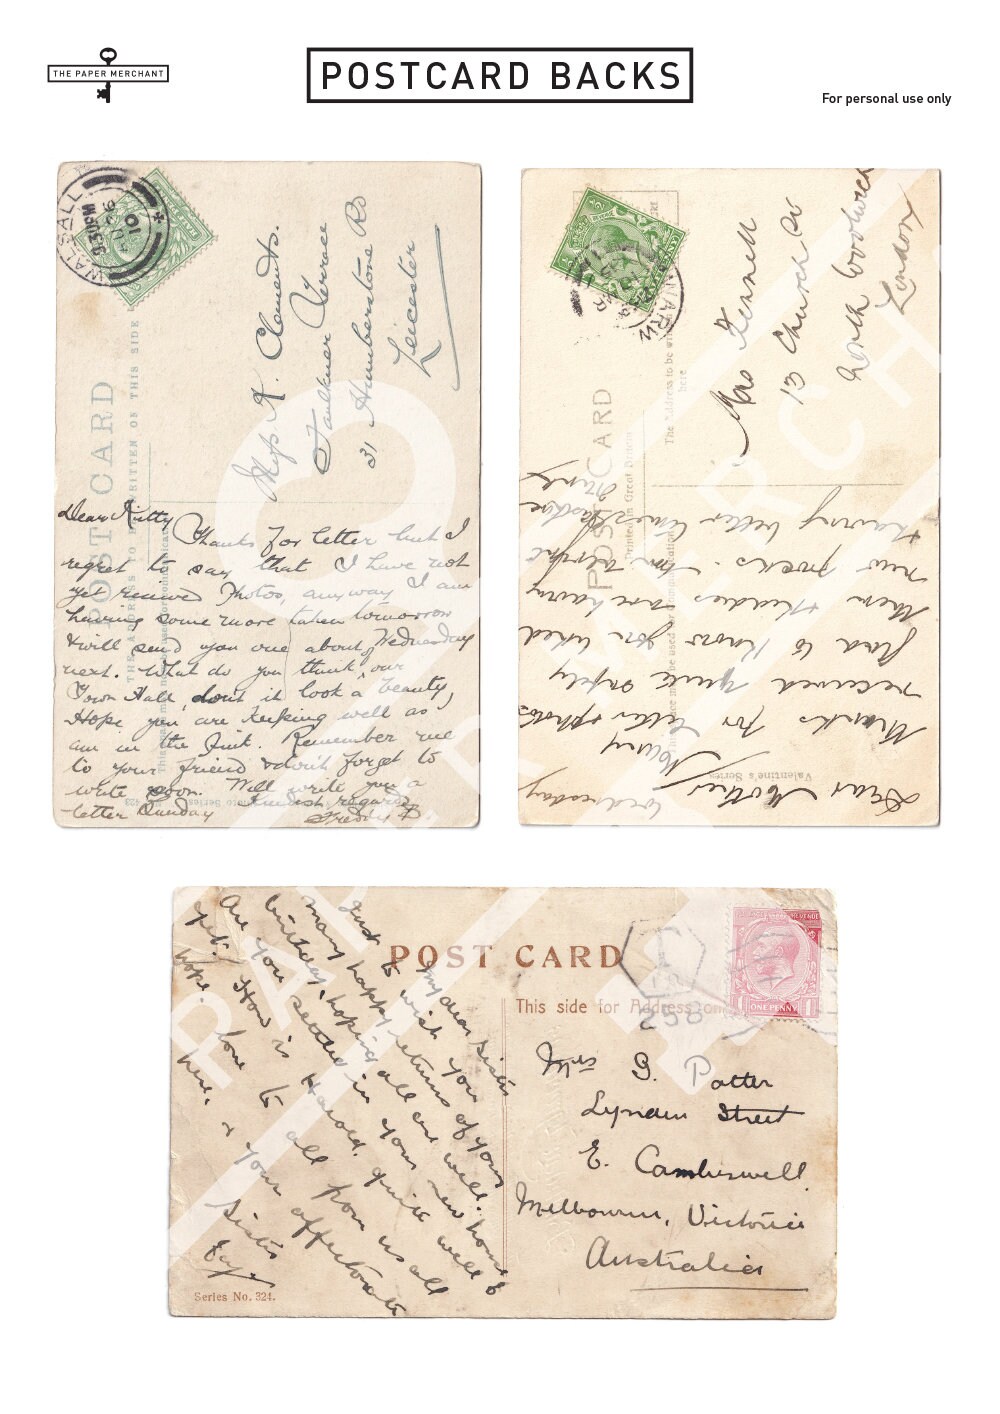 THE PAPER MERCHANT
POSTCARD BACKS
For personal use only
WALSALL
9.30PM
AU 26
10
POST CARD
THE ADDRESS TO BE WRITTEN ON THIS SIDE
Miss K. Clements.
Faulkner Terrace
31 Humberstone Rd
Leicester
Dear Kitty
Thanks for letter but I
regret to say that I have not
yet received Photos, anyway I am
having some more taken tomorrow
& will send you one about Wednesday
next. What do you think of our
Town Hall, don't it look a beauty,
Hope you are keeping well as I
am in the Pink. Remember me
to your friend & don't forget to
write soon. Will write you a
letter Sunday
Kindest regards
Freddy
POST CARD
Printed in Great Britain
The Address to be
here
Mrs Fennell
13 Church Rd
North Woolwich
London
Valentine's Series
Wednesday
Dear Mother
Thanks for letter & photos
received quite safely
Glad to know you liked
them Kiddies are having
new frocks.
having better
POST CARD
This side for Address only
258
ONE PENNY
Mrs G. Potter
Lyndon Street
E. Camberwell
Melbourne, Victoria
Australia
My dear Sister
Just to wish you
many happy returns of your
birthday, hoping all are well.
Are you settled in your new home
yet? How is Harold, quite well I
hope. love to all from us all
here, & your affectionate
Sister
Fay
Series No. 324.